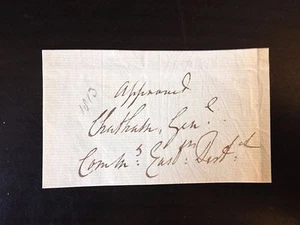 Approved
Chatham, Genl.
Commg. Eastn. Distct.